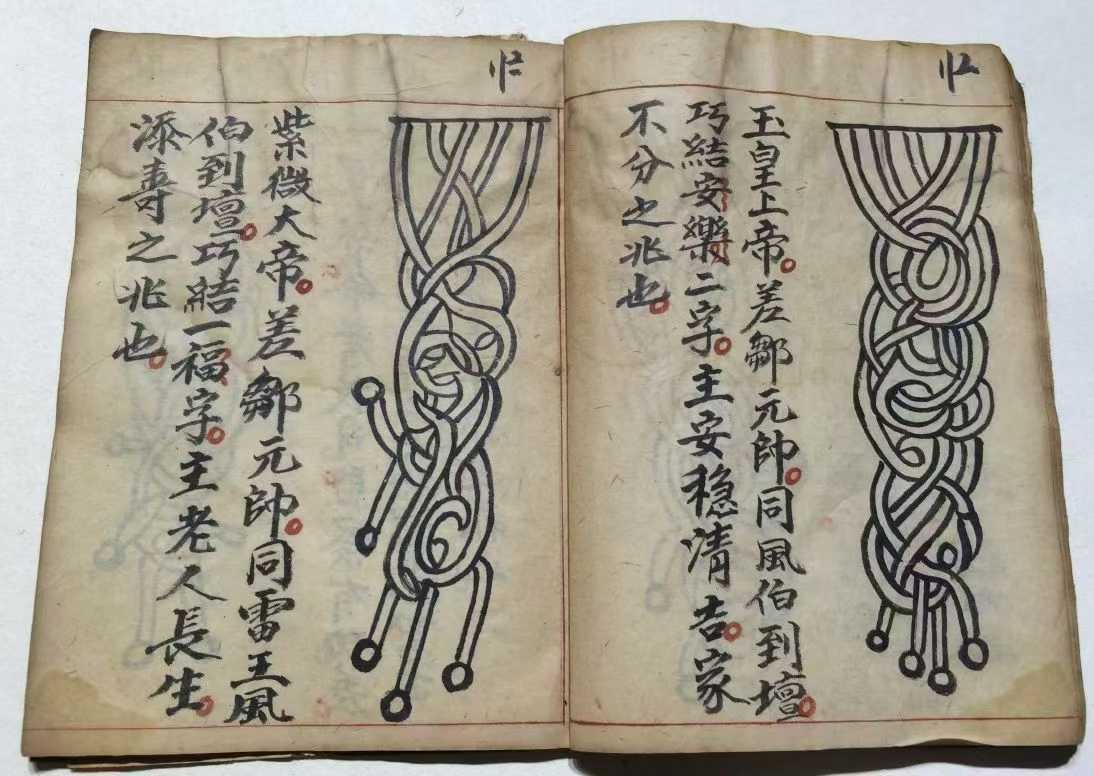 玉皇上帝。差鄒元帥。同風伯到壇。
巧結安樂二字。主安稳清吉。家
不分之兆也。
紫微大帝。差鄒元帥。同雷王風
伯到壇。巧結一福字。主老人長生。
添壽之兆也。